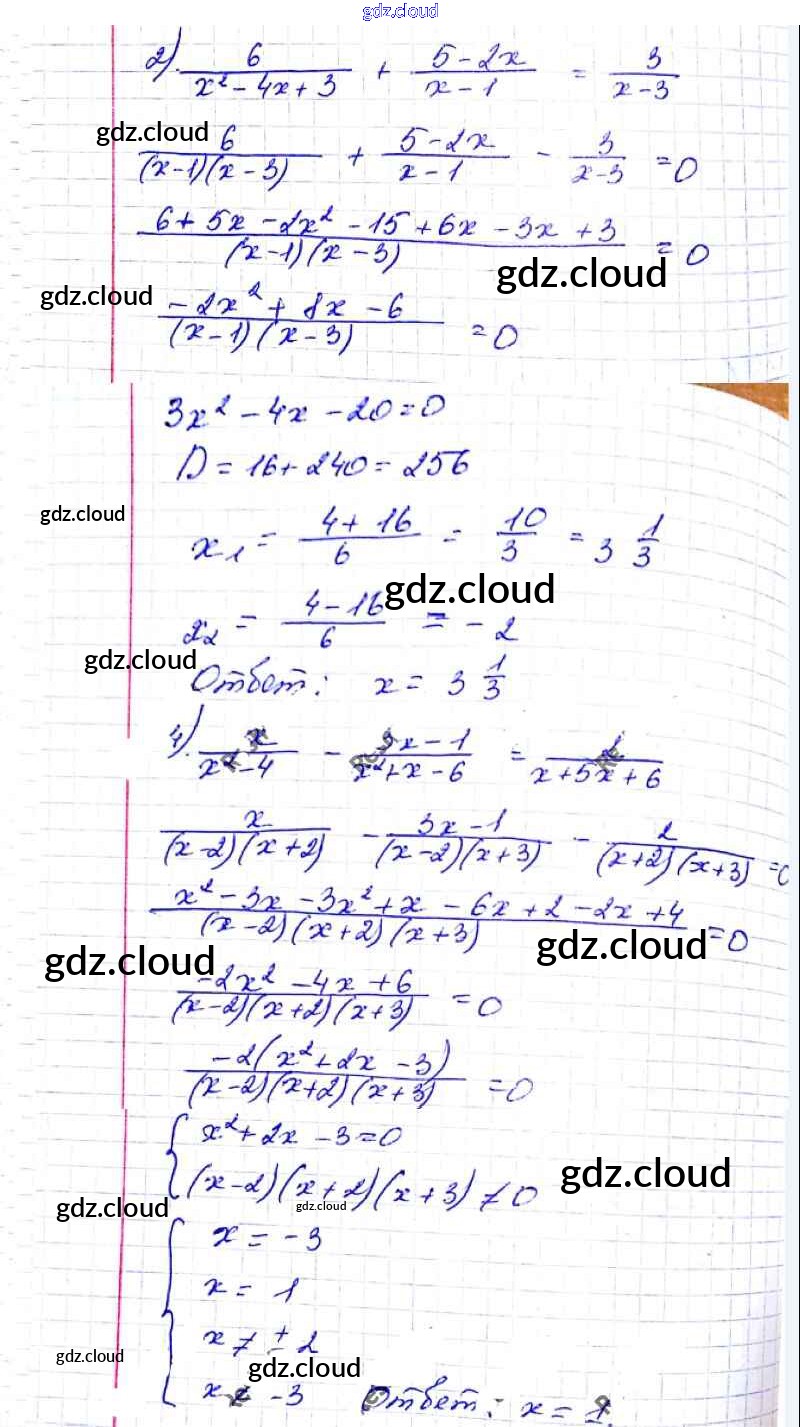 gdz.cloud
2). 6/(x² - 4x + 3) + (5 - 2x)/(x - 1) = 3/(x - 3)
gdz.cloud
6/((x-1)(x-3)) + (5 - 2x)/(x - 1) - 3/(x-3) = 0
(6 + 5x - 2x² - 15 + 6x - 3x + 3)/((x-1)(x-3)) = 0
gdz.cloud
gdz.cloud
(-2x² + 8x - 6)/((x-1)(x-3)) = 0
3x² - 4x - 20 = 0
D = 16 + 240 = 256
gdz.cloud
x₁ = (4 + 16)/6 = 10/3 = 3 1/3
gdz.cloud
x₂ = (4 - 16)/6 = -2
gdz.cloud
Ответ: x = 3 1/3
4). x/(x² - 4) - (3x - 1)/(x² + x - 6) = 2/(x + 5x + 6)
x/((x-2)(x+2)) - (3x - 1)/((x-2)(x+3)) - 2/((x+2)(x+3)) = 0
(x² - 3x - 3x² + x - 6x + 2 - 2x + 4)/((x-2)(x+2)(x+3)) = 0
gdz.cloud
gdz.cloud
(-2x² - 4x + 6)/((x-2)(x+2)(x+3)) = 0
(-2(x² + 2x - 3))/((x-2)(x+2)(x+3)) = 0
x² + 2x - 3 = 0
gdz.cloud
(x-2)(x+2)(x+3) ≠ 0
gdz.cloud
gdz.cloud
x = -3
x = 1
x ≠ ± 2
gdz.cloud
gdz.cloud
x ≠ -3 Ответ: x = 1.